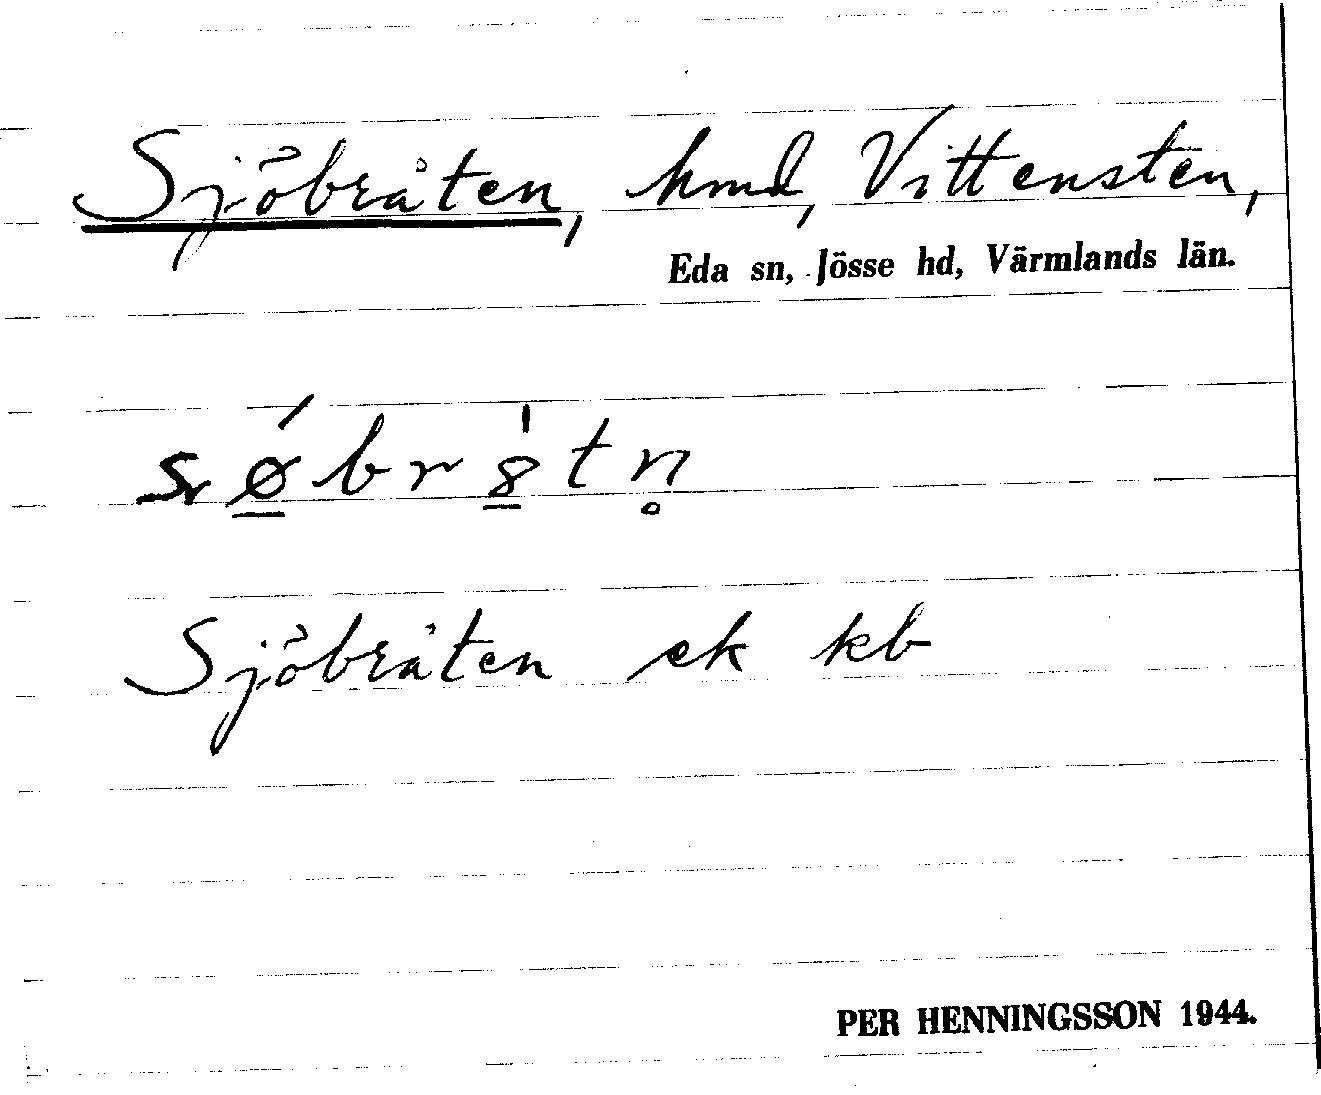 Sjöbråten, hmd, Vittensten,
Eda sn, Jösse hd, Värmlands län.
Sjöbråten ek kb
PER HENNINGSSON 1944.